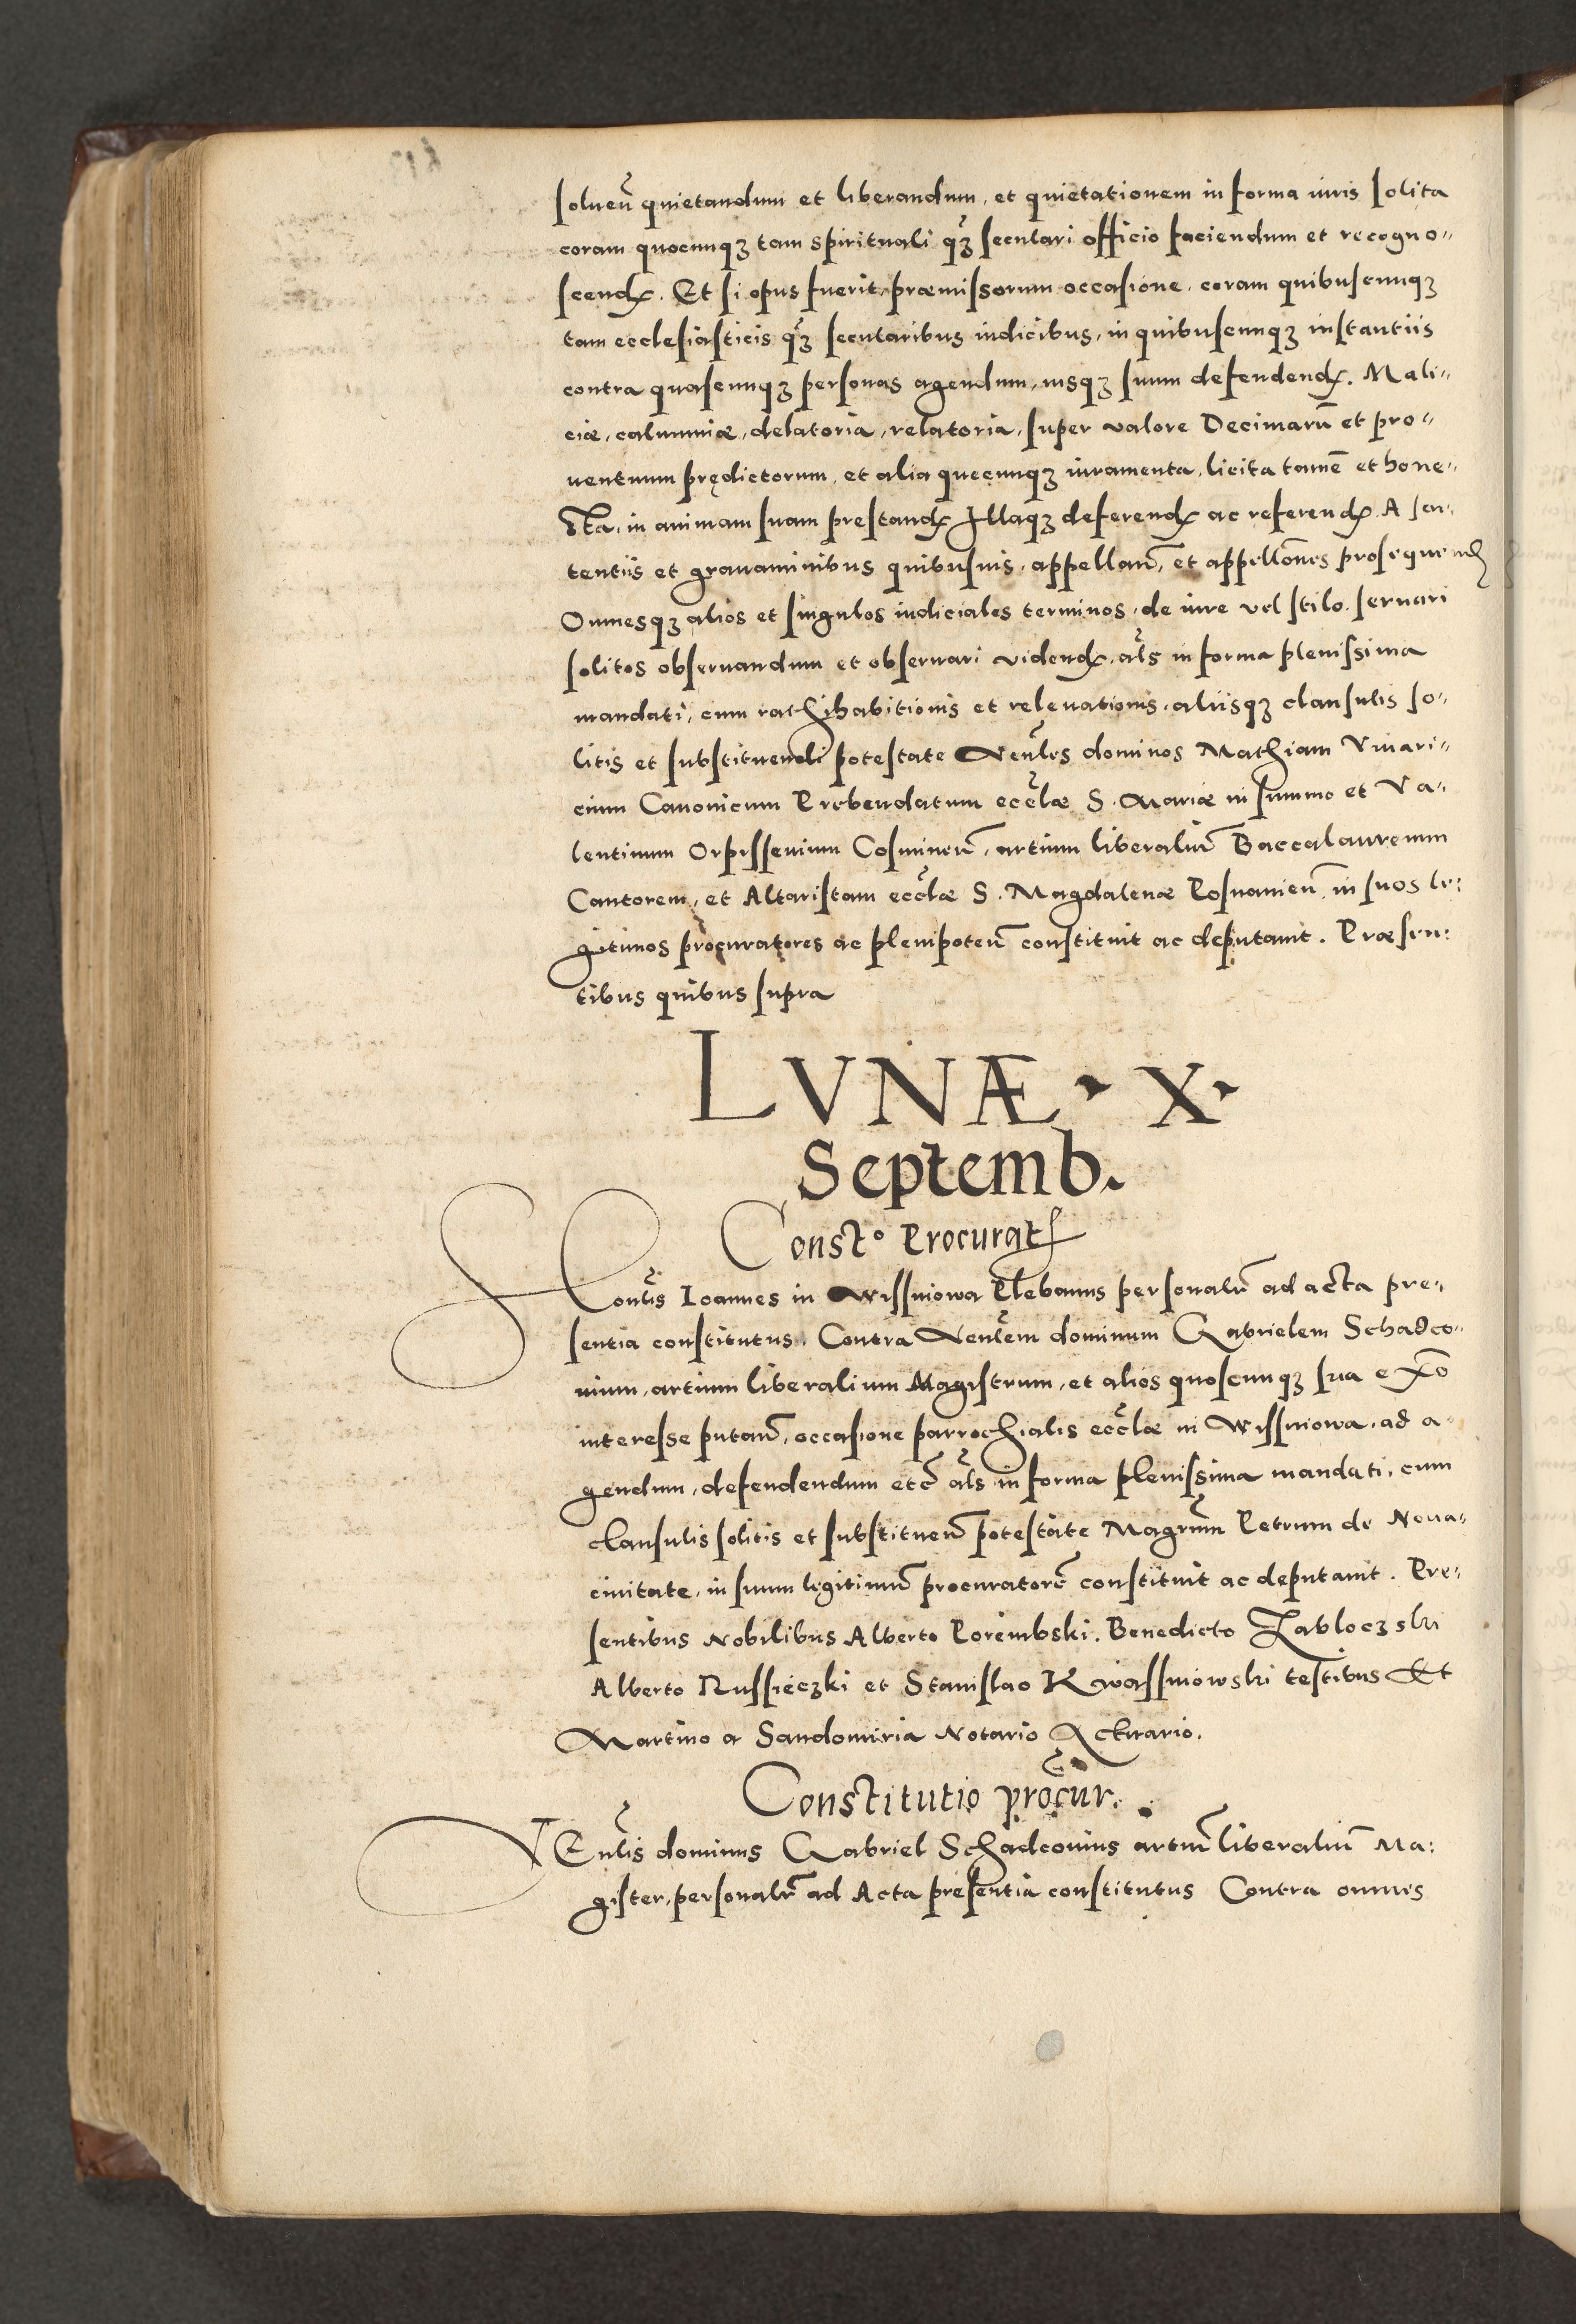 soluen̄ quietandum et liberandum, et quietationem in forma iuris solita
coram quocunqꝫ tam spirituali qꝫ̄ seculari officio faciendum et recogno-
scendꝭ. Et si opus fuerit præmissorum occasione, coram quibuscunqꝫ
tam ecclesiasticis qꝫ̄ secularibus iudicibus, in quibuscunqꝫ instantiis
contra quascunqꝫ personas agendum, iusqꝫ suum defendendꝭ. Mali-
ciæ, calumniæ, delatoria, relatoria, super valore Decimarū et pro-
uentuum prędictorum, et alia quecunqꝫ iuramenta, licita tamē et hone-
sta, in animam suam prestandꝭ Illaqꝫ deferendꝭ ac referendꝭ. A sen-
tentiis et grauaminibus quibusuis, appellan̄, et appellōnes prosequendꝭ
Omnesqꝫ alios et singulos iudiciales terminos, de iure vel stilo, seruari
solitos obseruandum et obseruari videndꝭ, al̄s in forma plenissima
mandati, cum rathihabitionis et releuationis, aliisqꝫ clausulis so-
litis et substituendi potestate Venl̄es dominos Mathiam Vinari-
cium Canonicum Prebendatum eccl̄æ S. Mariæ in summo et Va-
lentinum Orpissenium Cosminen̄, artium liberaliū Baccalaureum
Cantorem, et Altaristam eccl̄æ S. Magdalenæ Posnanien̄, in suos le:
gitimos procuratores ac plenipoten̄ constituit ac deputauit. Præsen:
tibus quibus supra
LVNÆ · X ·
Septemb.
Constᵒ Procuratꝭ
Honl̄is Ioannes in Wissniowa Plebanus personalr̄ ad acta pre-
sentia constitutus. Contra Venl̄em dominum Gabrielem Schadco-
uium, artium liberalium Magistrum, et alios quoscunqꝫ sua ex̄o
interesse putan̄, occasione parrochialis eccl̄æ in Wissniowa, ad a-
gendum, defendendum etc̄ al̄s in forma plenissima mandati, cum
clausulis solitis et substituen̄ potestate Magrūm Petrum de Noua-
ciuitate, in suum legitimū procuratorē constituit ac deputauit. Pre-
sentibus Nobilibus Alberto Porembski, Benedicto Zabloczski
Alberto Russieczki et Stanislao Kwassniowski testibus Et
Martino a Sandomiria Notario Actuario.
Constitutio prōcur.
VEnl̄is dominus Gabriel Schadcouius artiū liberaliū Ma:
gister, personalr̄ ad Acta presentia constitutus Contra omnes